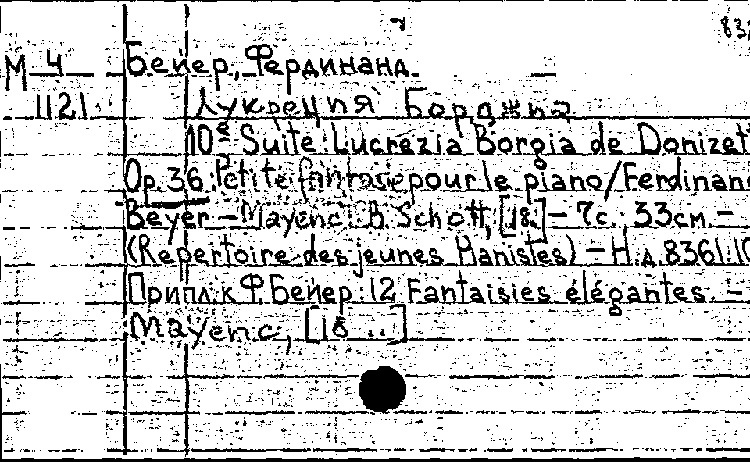 83
М 4 Бейер, Фердинанд.
1121 Лукреция Борджиа
10ᵉ Suite: Lucrezia Borgia de Donizet
Op. 36: Petite fantasie pour le piano/Ferdinand
Beyer – Mayence: B. Schott, [18.] – 7с. 33см. –
(Repertoire des jeunes Pianistes) – Н.д. 8361.10
Припл. к Ф. Бейер: 12 Fantaisies élégantes. –
Mayenc, [18 ..]